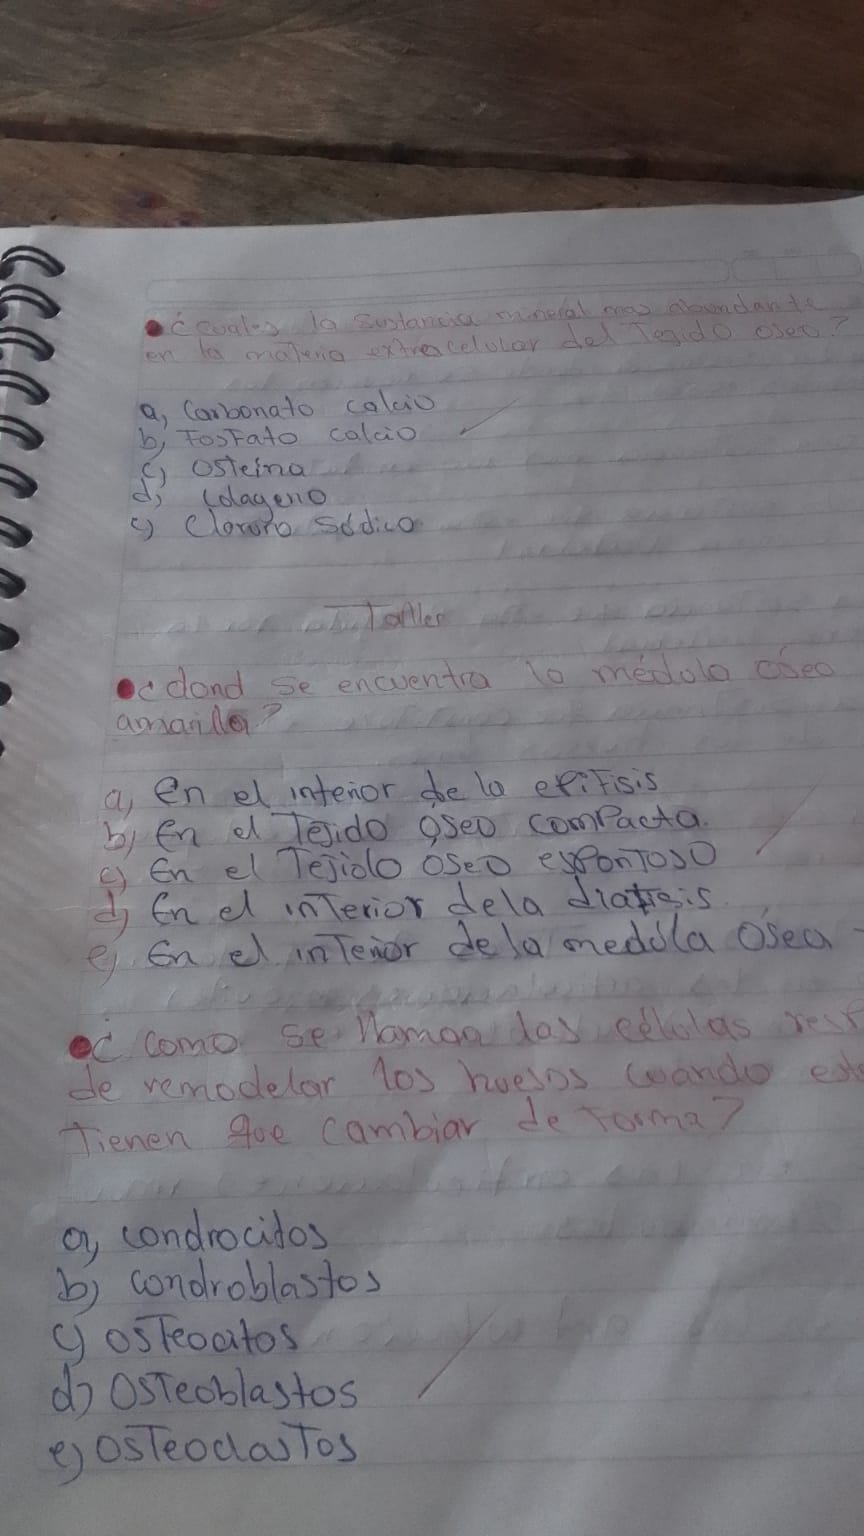 • ¿cuales la sustancia mineral mas abundante
en la materia extracelular del Tegido oseo?
a, Carbonato calcio
b, FosFato calcio
c) osteina
d, colageno
c) Cloruro Sódico
Taller
• ¿dond se encuentra la médula óseo
amarilla?
a, en el interior de la epiFisis
b, En el Tejido oseo comPacta.
c) En el Tejido oseo esponToso
d, En el inTerior dela diafisis.
e, En el inTerior de la medúla Ósea
• ¿ como se llaman las células
de remodelar los huesos cuando
Tienen que cambiar de Forma?
a, condrocitos
b) condroblastos
c) osTeocitos
d) OsTeoblastos
e) osTeoclasTos